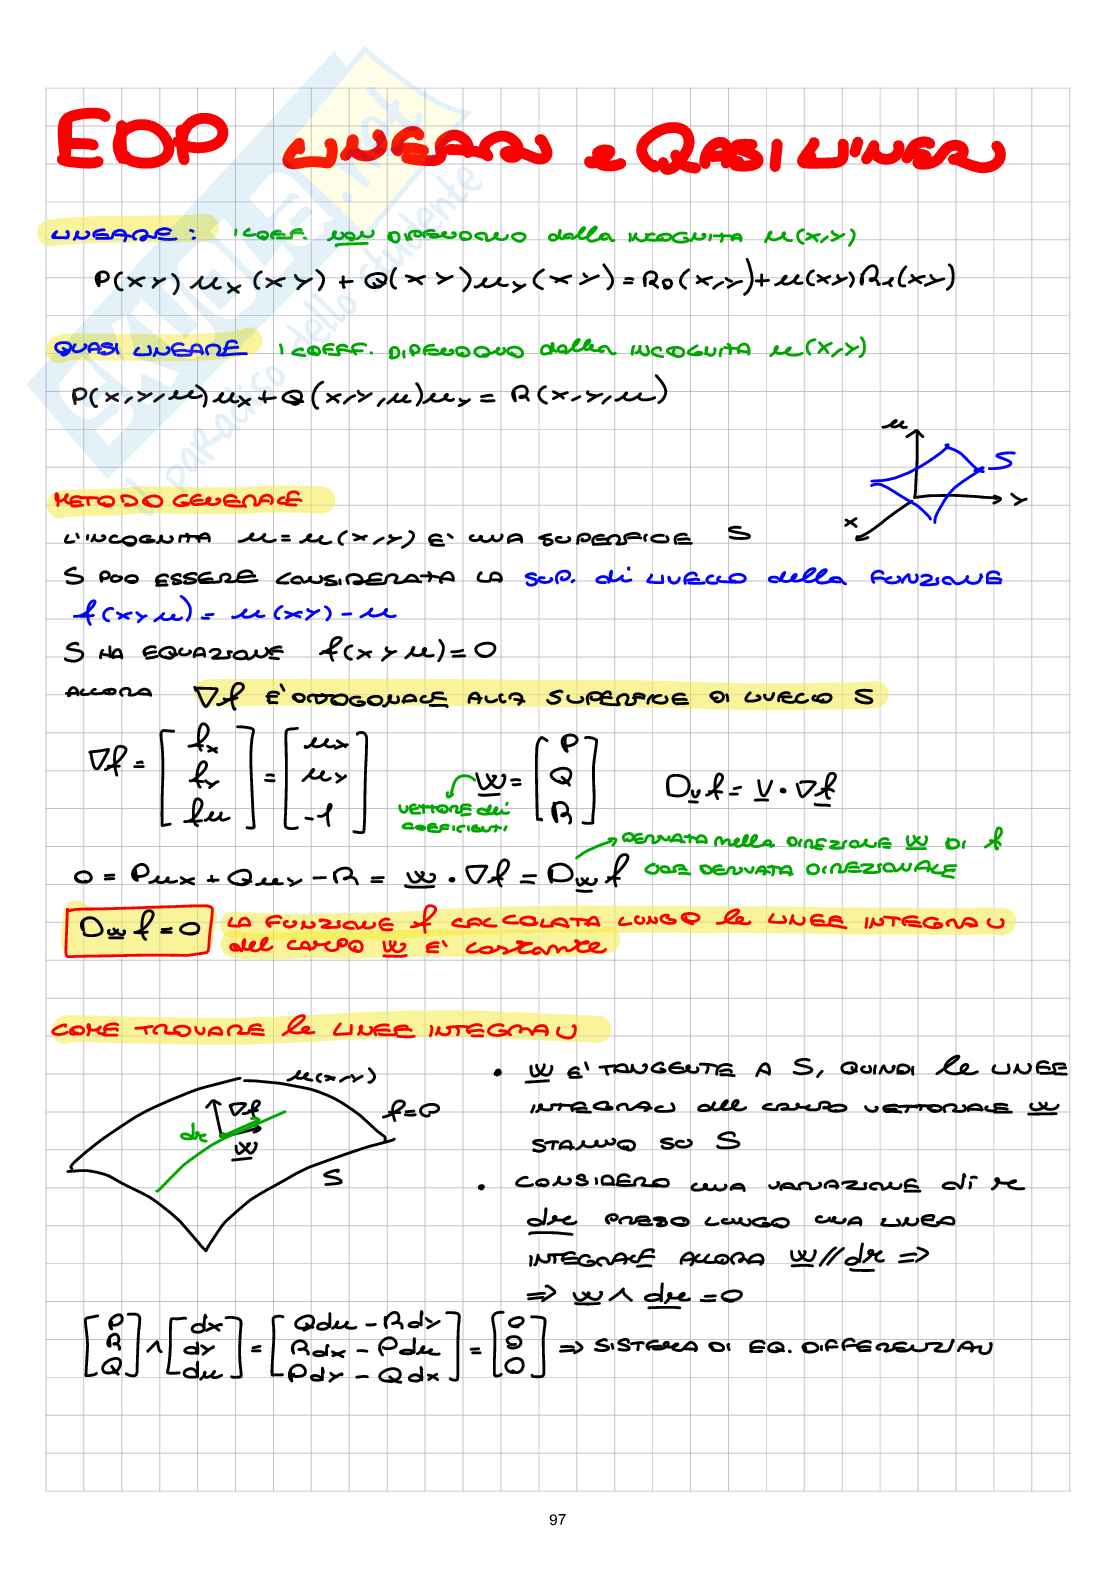 EDP LINEARI e QUASI LINEARI
LINEARE: I COEF. NON DIPENDONO dalla INCOGNITA u(x,y)
P(x y) ux (x y) + Q(x y) uy (x y) = R0 (x,y) + u(xy) R1(xy)
QUASI LINEARE I COEFF. DIPENDONO dalla INCOGNITA u(x,y)
P(x,y,u) ux + Q(x,y,u) uy = R(x,y,u)
u
S
y
x
METODO GENERALE
L'INCOGNITA u = u(x,y) E' UNA SUPERFICIE S
S PUO ESSERE CONSIDERATA LA SUP. di LIVELLO della FUNZIONE
f(x y u) = u(x y) - u
S HA EQUAZIONE f(x y u) = 0
ALLORA ∇f E' ORTOGONALE ALLA SUPERFICIE DI LIVELLO S
∇f = [fx fy fu] = [ux uy -1] w = [P Q R] Dv f = v · ∇f
VETTORE dei
COEFICIENTI
DERIVATA nella DIREZIONE w DI f
0 = P ux + Q uy - R = w · ∇f = Dw f
DERIVATA DIREZIONALE
Dw f = 0 LA FUNZIONE f CALCOLATA LUNGO le LINEE INTEGRALI
del CAMPO w E' costante
COME TROVARE le LINEE INTEGRALI
u(x,y)
f=0
∇f
dr
w
S
• w E' TANGENTE A S, QUINDI le LINEE
INTEGRALI del CAMPO VETTORIALE w
STANNO SU S
• CONSIDERO UNA VARIAZIONE di r
dr PRESO LUNGO UNA LINEA
INTEGRALE ALLORA w // dr ⇒
⇒ w ∧ dr = 0
[P R Q] ∧ [dx dy du] = [Qdu - Rdy Rdx - Pdu Pdy - Qdx] = [0 0 0] ⇒ SISTEMA DI EQ. DIFFERENZIALI
97
SKUOLA.net
il paradiso dello studente